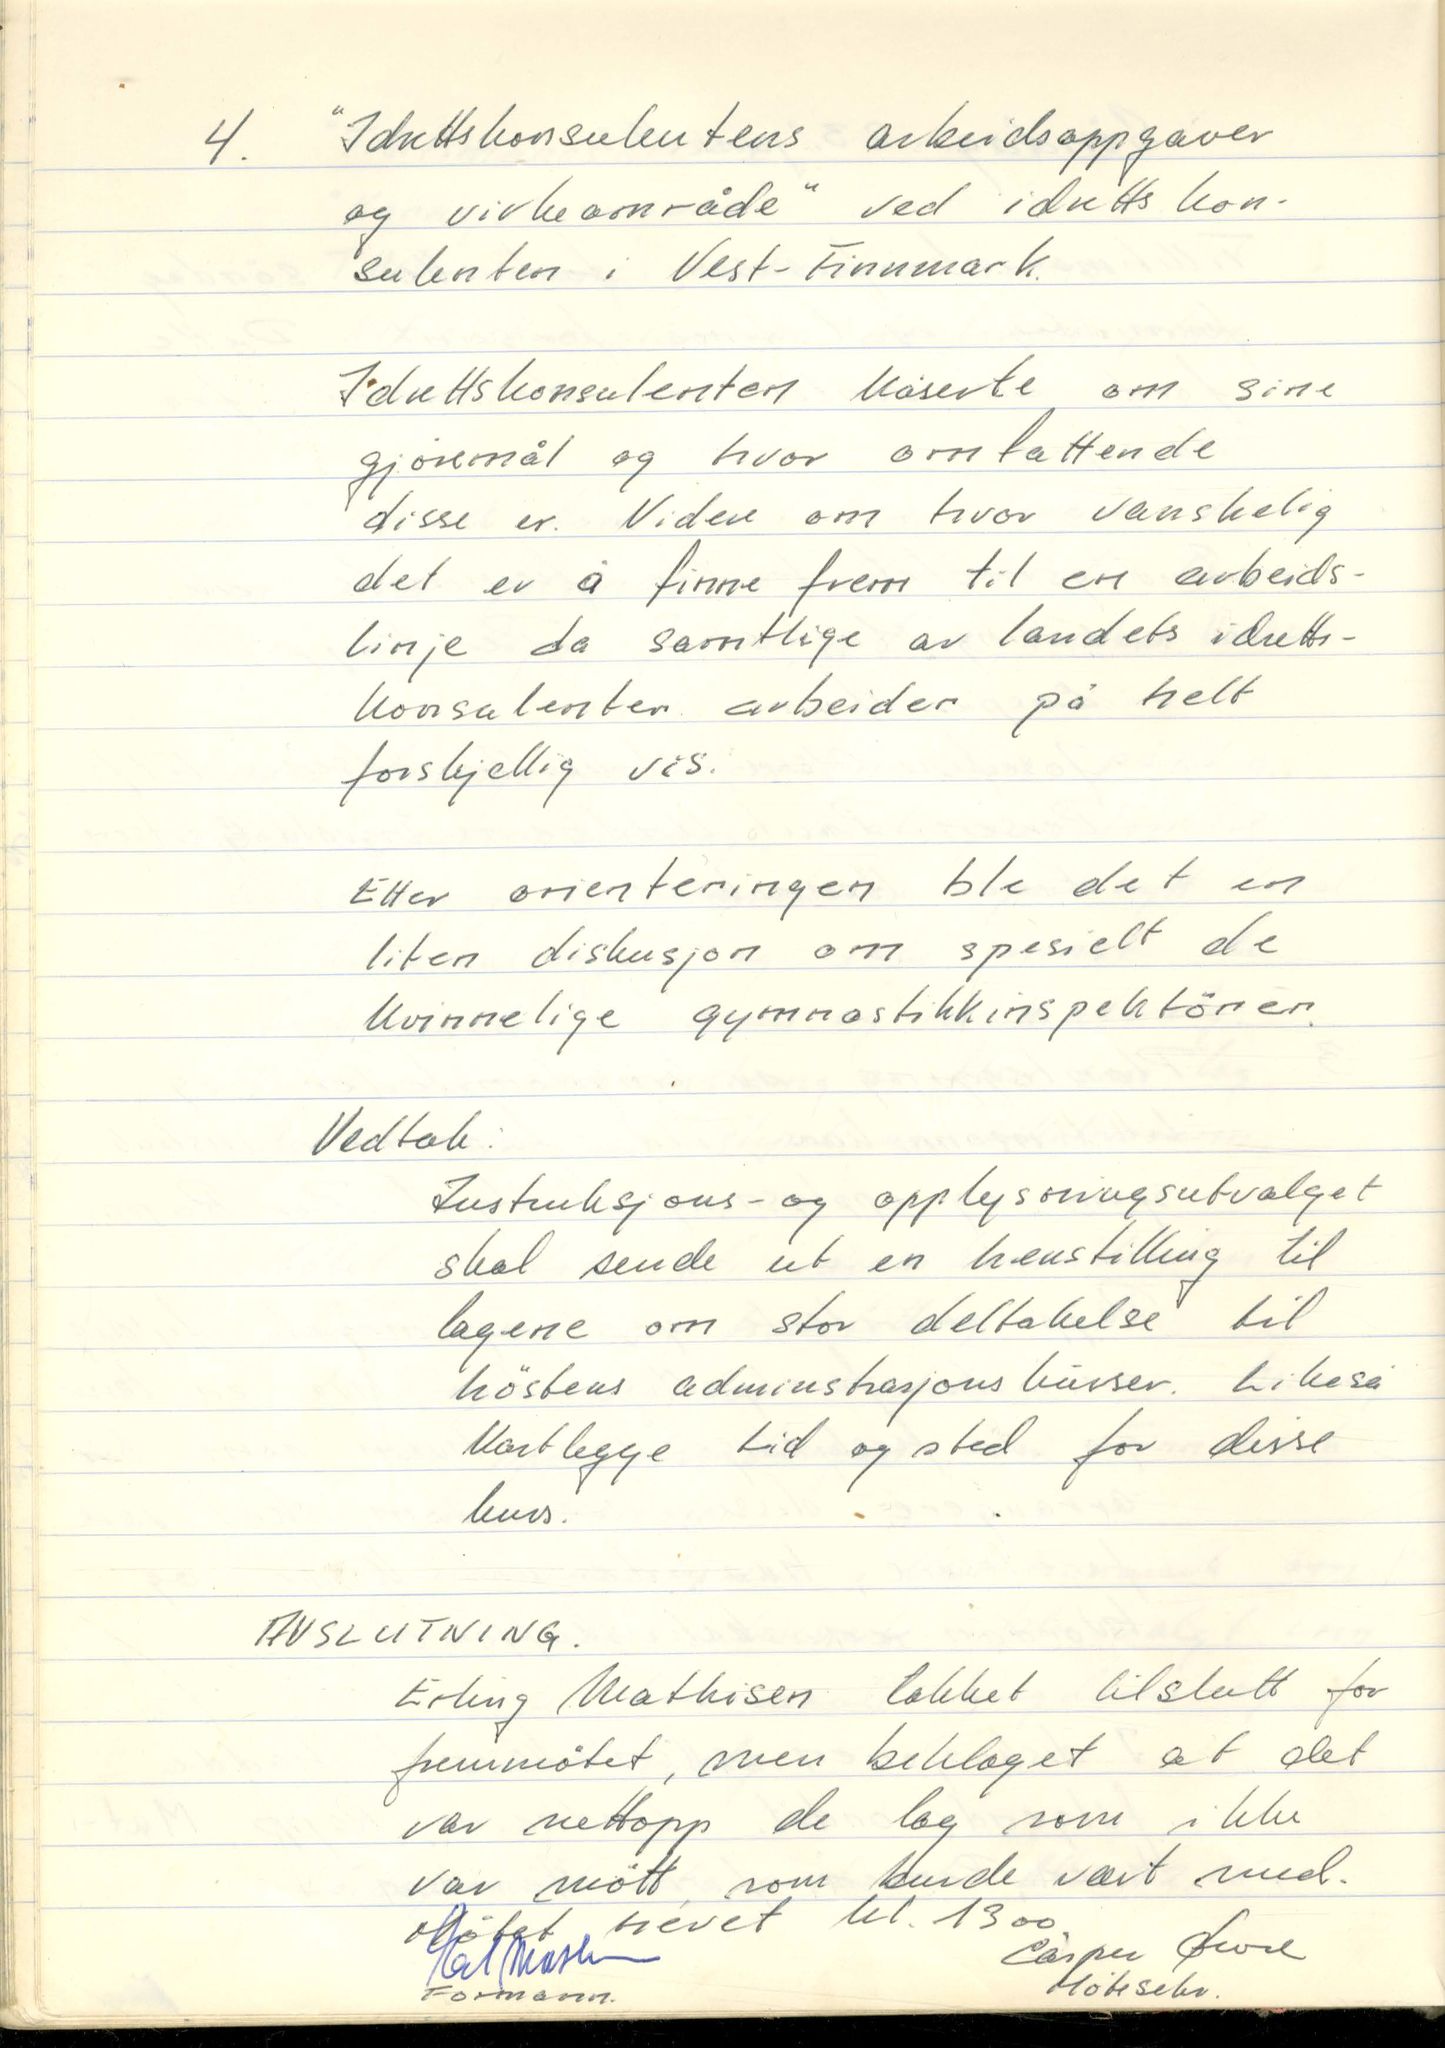 4. "Idrettskonsulentens arbeidsoppgaver
og virkeområde" ved idrettskon-
sulenten i Vest-Finnmark.
Idrettskonsulenten kåserte om sine
gjøremål og hvor omfattende
disse er. Videre om hvor vanskelig
det er å finne frem til en arbeids-
linje da samtlige av landets idretts-
konsulenter arbeider på helt
forskjellig vis.
Etter orienteringen ble det en
liten diskusjon om spesielt de
kvinnelige gymnastikkinspektörer.
Vedtak:
Instruksjons- og opplysningsutvalget
skal sende ut en henstilling til
lagene om stor deltakelse til
höstens adminstrasjonskurser. Likeså
kartlegge tid og sted for disse
kurs.
AVSLUTNING.
Erling Mathisen takket tilslutt for
fremmötet, men beklaget at det
var nettopp de lag som ikke
var mött, som burde vært med.
Mötet hevet kl. 1300.
Casper
Formann. Mötesekr.